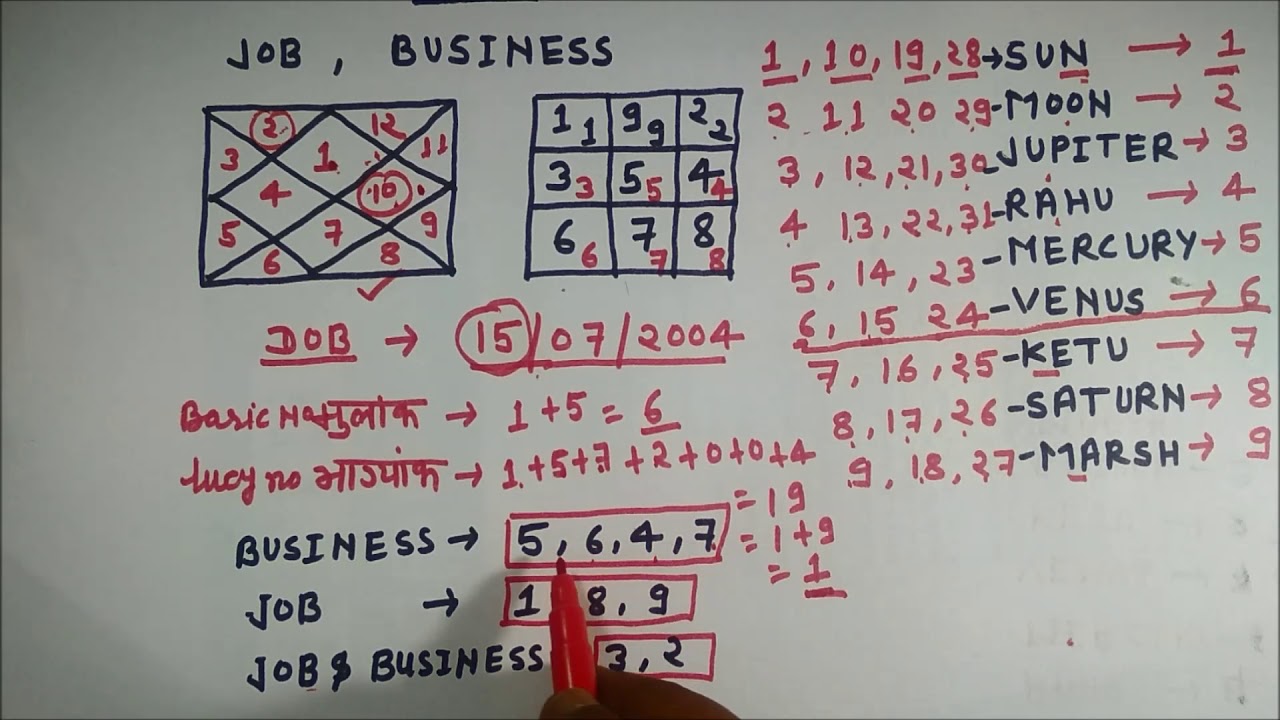 JOB , BUSINESS
2 12
3 1 11
4 10
5 7 9
6 8
1 1 9 9 2 2
3 3 5 5 4 4
6 6 7 7 8 8
DOB → 15/07/2004
Basic मुलांक → 1+5 = 6
lucy no भाग्यांक → 1+5+7+2+0+0+4
= 19
= 1+9
= 1
BUSINESS → 5, 6, 4, 7
JOB → 1 8, 9
JOB $ BUSINESS 3, 2
1, 10, 19, 28 → SUN → 1
2 11 20 29 - MOON → 2
3, 12, 21, 30 JUPITER → 3
4 13, 22, 31 - RAHU → 4
5, 14, 23 - MERCURY → 5
6, 15 24 - VENUS → 6
7, 16, 25 - KETU → 7
8, 17, 26 - SATURN → 8
9, 18, 27 - MARSH → 9